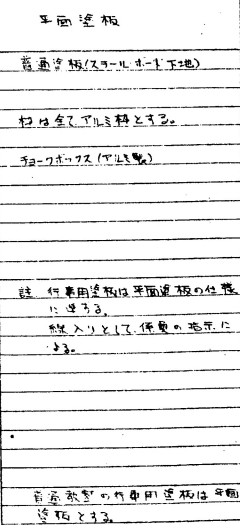 平面塗板
普通塗板(スチールボード下地)
枠は全てアルミ枠とする。
チョークボックス(アルミ製)
註 行事用塗板は平面塗板の仕様
に準ずる。
線入りとして、係員の指示に
よる。
普通教室の行事用塗板は平面
塗板とする。